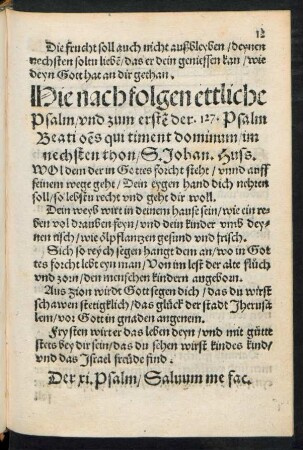 12
Die frucht soll auch nicht außbleyben / deynen
nechsten soltu lieben / das er dein geniessen kan / wie
deyn Gott hat an dir gethan.
Hie nach folgen ettliche
Psalm / vnd zum erstē der. 127. Psalm
Beati oēs qui timent dominum / im
nechsten thon / S. Johan. Huss.
WOl dem der in Gottes forcht steht / vnnd auff
seinem wege geht / Dein eygen hand dich nehren
soll / so lebstu recht vnd geht dir woll.
Dein weyb wirt in deinem hause sein / wie ein re-
ben vol drauben feyn / vnd dein kinder vmb dey-
nen tisch / wie ölpflanzen gesund vnd frisch.
Sich so reych segen hangt dem an / wo in Got
tes forcht lebt eyn man / Von im lest der alte fluch
vnd zorn / den menschen kindern angeborn.
Aus zion wirdt Gott segen dich / das du wirst
schawen stetigklich / das glück der stadt Jherusa-
lem / vor Gott in gnaden angenem.
Frysten wirt er das leben deyn / vnd mit gütte
stets bey dir sein / das du sehen wirst kindes kind /
vnd das Israel freüde find.
Der xi. Psalm / Saluum me fac.